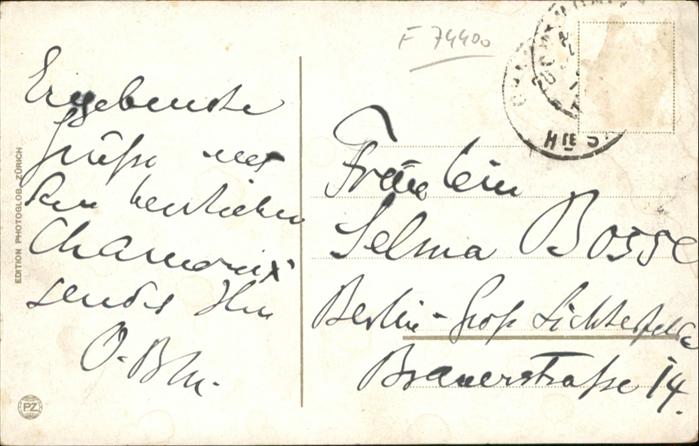 F 74400
Hte S
Ergebenste
Grüße aus
dem herrlichen
Chamonix
sendet Ihr
O. Bln.
Fräulein
Selma Bosse
Berlin-Groß Lichterfelde
Brauerstraße 14.
EDITION PHOTOGLOB - ZÜRICH
PZ